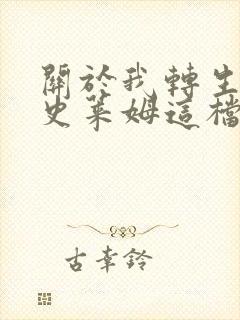 關於我轉生
史萊姆這檔
古幸鈴